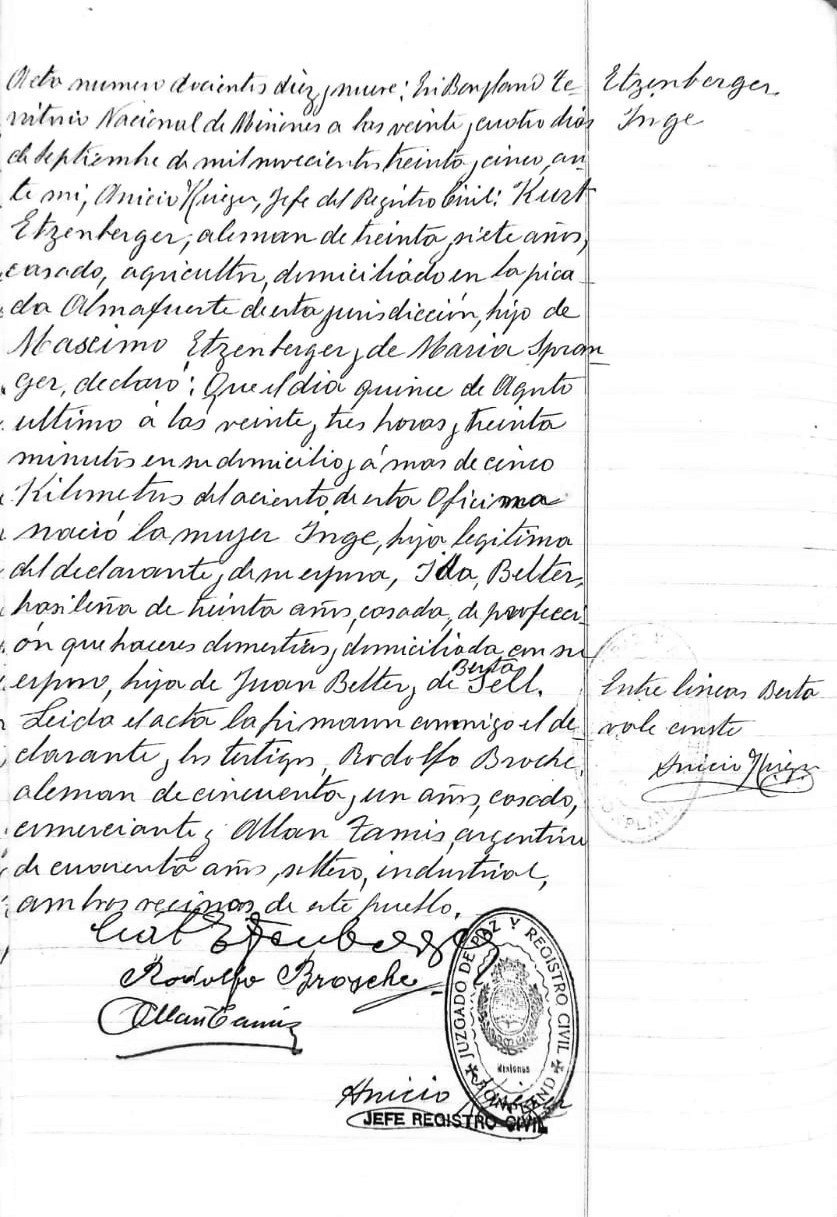 Etzenberger
Inge
Acta numero docientos diez y nueve: En Bonpland Te-
rritorio Nacional de Misiones a los veinte y cuatro dias
de Septiembre de mil novecientos treinta y cinco, an-
te mi, Anicio Kuiger, Jefe del Registro Civil: Kurt
Etzenberger, aleman de treinta y siete años,
casado, agricultor, domiciliado en la pica-
da Almafuerte de esta jurisdicción, hijo de
Mascimo Etzenberger y de Maria Spran-
ger, declaró: Que el dia quince de Agosto
ultimo á las veinte y tres horas y treinta
minutos en su domicilio y á mas de cinco
Kilometros del aciento de esta Oficina
nació la mujer Inge, hija legitima
del declarante y de su esposa, Ida Belter,
brasileña de treinta años, casada, de profecci-
ón que haceres domesticos, domiciliada con su
esposo, hija de Juan Belter y de Berta Sell.
Leida el acta la firmaron conmigo el de-
clarante y los testigos, Rodolfo Broche,
aleman de cincuenta y un años, casado,
comerciante y Allan Tamis, argentino
de cuarenta años, soltero, industrial,
ambos vecinos de este pueblo.
Entre lineas Berta
vale conste
Anicio
Kurt Etzenberger
Rodolfo Brosche
Allan Tamis
Anicio
JEFE REGISTRO CIVIL
JUZGADO DE PAZ Y REGISTRO CIVIL
Misiones
BONPLAND